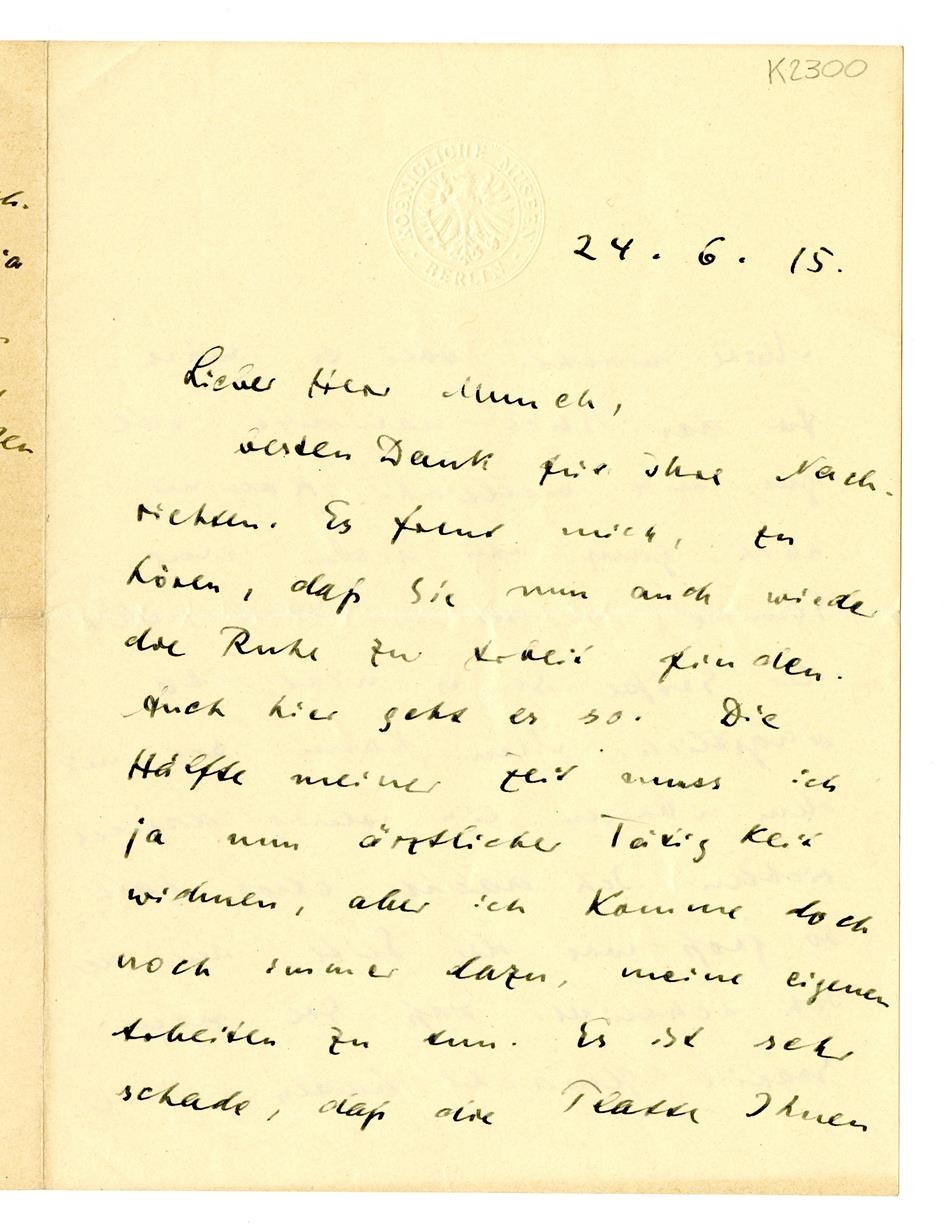 K2300
KOENIGLICHE MUSEEN
BERLIN
24. 6. 15.
Lieber Herr Munch,
besten Dank für Ihre Nach-
richten. Es freut mich, zu
hören, daß Sie nun auch wieder
die Ruhe zur Arbeit finden.
Auch hier geht es so. Die
Hälfte meiner Zeit muss ich
ja nun ärztlicher Tätigkeit
widmen, aber ich komme doch
noch immer dazu, meine eigenen
Arbeiten zu tun. Es ist sehr
schade, daß die Platte Ihnen